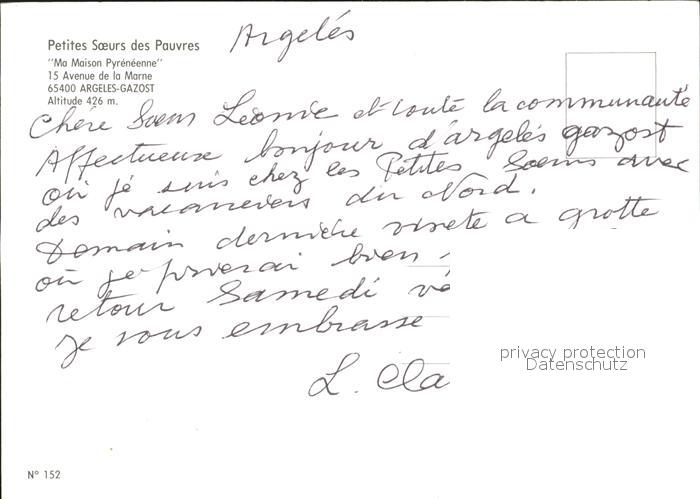 Argelés
Petites Sœurs des Pauvres
"Ma Maison Pyrénéenne"
15 Avenue de la Marne
65400 ARGELES-GAZOST
Altitude 426 m.
Chére Sœur Léonie et toute la communauté
Affectueux bonjour d'argelés gazost
où je suis chez les Petites Sœurs avec
des vacanciers du Nord.
Domain derniére visite a grotte
où je prierai bien
retour Samedi
je vous embrasse
L. Cla
privacy protection
Datenschutz
N° 152